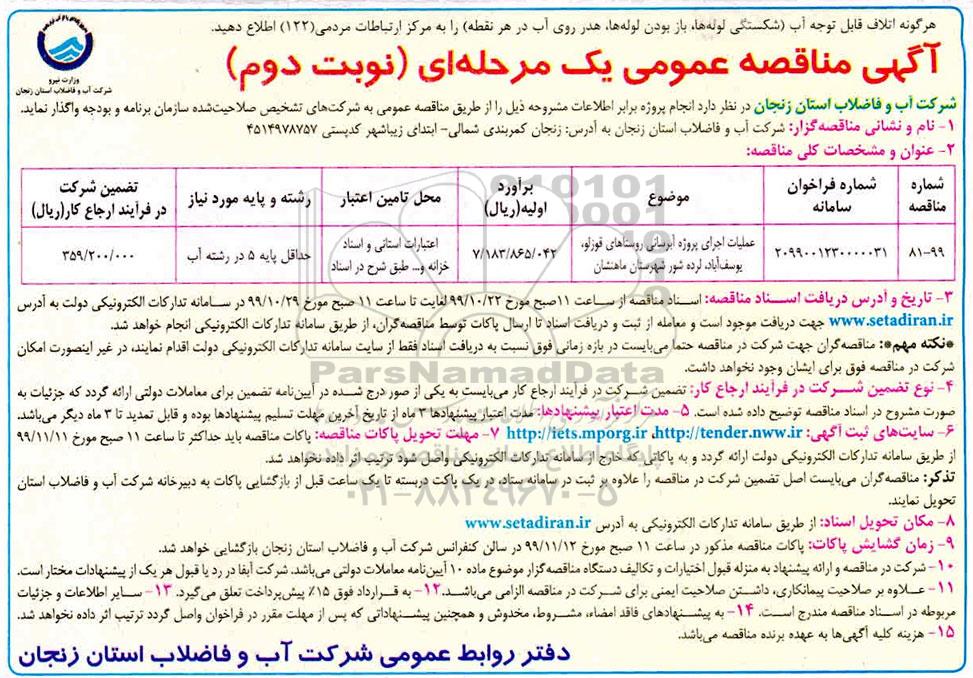 هرگونه اتلاف قابل توجه آب (شکستگی لوله‌ها، باز بودن لوله‌ها، هدر روی آب در هر نقطه) را به مرکز ارتباطات مردمی(۱۲۲) اطلاع دهید.
وزارت نیرو
شرکت آب و فاضلاب استان زنجان
آگهی مناقصه عمومی یک مرحله‌ای (نوبت دوم)
شرکت آب و فاضلاب استان زنجان در نظر دارد انجام پروژه برابر اطلاعات مشروحه ذیل را از طریق مناقصه عمومی به شرکت‌های تشخیص صلاحیت‌شده سازمان برنامه و بودجه واگذار نماید.
۱- نام و نشانی مناقصه‌گزار: شرکت آب و فاضلاب استان زنجان به آدرس: زنجان کمربندی شمالی- ابتدای زیباشهر کدپستی ۴۵۱۴۹۷۸۷۵۷
۲- عنوان و مشخصات کلی مناقصه:
شماره مناقصه | شماره فراخوان سامانه | موضوع | برآورد اولیه(ریال) | محل تامین اعتبار | رشته و پایه مورد نیاز | تضمین شرکت در فرآیند ارجاع کار(ریال)
۸۱-۹۹ | ۲۰۹۹۰۰۱۲۳۰۰۰۰۰۳۱ | عملیات اجرای پروژه آبرسانی روستاهای قوزلو، یوسف‌آباد، لرده شور شهرستان ماهنشان | ۷/۱۸۳/۸۶۵/۰۴۲ | اعتبارات استانی و اسناد خزانه و... طبق شرح در اسناد | حداقل پایه ۵ در رشته آب | ۳۵۹/۲۰۰/۰۰۰
۳- تاریخ و آدرس دریافت اسناد مناقصه: اسناد مناقصه از ساعت ۱۱صبح مورخ ۹۹/۱۰/۲۲ لغایت تا ساعت ۱۱ صبح مورخ ۹۹/۱۰/۲۹ در سامانه تدارکات الکترونیکی دولت به آدرس
www.setadiran.ir جهت دریافت موجود است و معامله از ثبت و دریافت اسناد تا ارسال پاکات توسط مناقصه‌گران، از طریق سامانه تدارکات الکترونیکی انجام خواهد شد.
*نکته مهم*: مناقصه‌گران جهت شرکت در مناقصه حتما می‌بایست در بازه زمانی فوق نسبت به دریافت اسناد فقط از سایت سامانه تدارکات الکترونیکی دولت اقدام نمایند، در غیر اینصورت امکان
شرکت در مناقصه فوق برای ایشان وجود نخواهد داشت.
۴- نوع تضمین شرکت در فرآیند ارجاع کار: تضمین شرکت در فرآیند ارجاع کار می‌بایست به یکی از صور درج شده در آیین‌نامه تضمین برای معاملات دولتی ارائه گردد که جزئیات به
صورت مشروح در اسناد مناقصه توضیح داده شده است. ۵- مدت اعتبار پیشنهادها: مدت اعتبار پیشنهادها ۳ ماه از تاریخ آخرین مهلت تسلیم پیشنهادها بوده و قابل تمدید تا ۳ ماه دیگر می‌باشد.
۶- سایت‌های ثبت آگهی: http://iets.mporg.ir ،http://tender.nww.ir ۷- مهلت تحویل پاکات مناقصه: پاکات مناقصه باید حداکثر تا ساعت ۱۱ صبح مورخ ۹۹/۱۱/۱۱
از طریق سامانه تدارکات الکترونیکی دولت ارائه گردد و به پاکاتی که خارج از سامانه تدارکات الکترونیکی واصل شود ترتیب اثر داده نخواهد شد.
تذکر: مناقصه‌گران می‌بایست اصل تضمین شرکت در مناقصه را علاوه بر ثبت در سامانه ستاد، در یک پاکت دربسته تا یک ساعت قبل از بازگشایی پاکات به دبیرخانه شرکت آب و فاضلاب استان
تحویل نمایند.
۸- مکان تحویل اسناد: از طریق سامانه تدارکات الکترونیکی به آدرس www.setadiran.ir
۹- زمان گشایش پاکات: پاکات مناقصه مذکور در ساعت ۱۱ صبح مورخ ۹۹/۱۱/۱۲ در سالن کنفرانس شرکت آب و فاضلاب استان زنجان بازگشایی خواهد شد.
۱۰- شرکت در مناقصه و ارائه پیشنهاد به منزله قبول اختیارات و تکالیف دستگاه مناقصه‌گزار موضوع ماده ۱۰ آیین‌نامه معاملات دولتی می‌باشد. شرکت آبفا در رد یا قبول هر یک از پیشنهادات مختار است.
۱۱- علاوه بر صلاحیت پیمانکاری، داشتن صلاحیت ایمنی برای شرکت در مناقصه الزامی می‌باشد. ۱۲- به قرارداد فوق ۱۵٪ پیش‌پرداخت تعلق می‌گیرد. ۱۳- سایر اطلاعات و جزئیات
مربوطه در اسناد مناقصه مندرج است. ۱۴- به پیشنهادهای فاقد امضاء، مشروط، مخدوش و همچنین پیشنهاداتی که پس از مهلت مقرر در فراخوان واصل گردد ترتیب اثر داده نخواهد شد.
۱۵- هزینه کلیه آگهی‌ها به عهده برنده مناقصه می‌باشد.
دفتر روابط عمومی شرکت آب و فاضلاب استان زنجان
ParsNamadData
۰۲۱-۸۸۳۴۹۶۷۰-۵